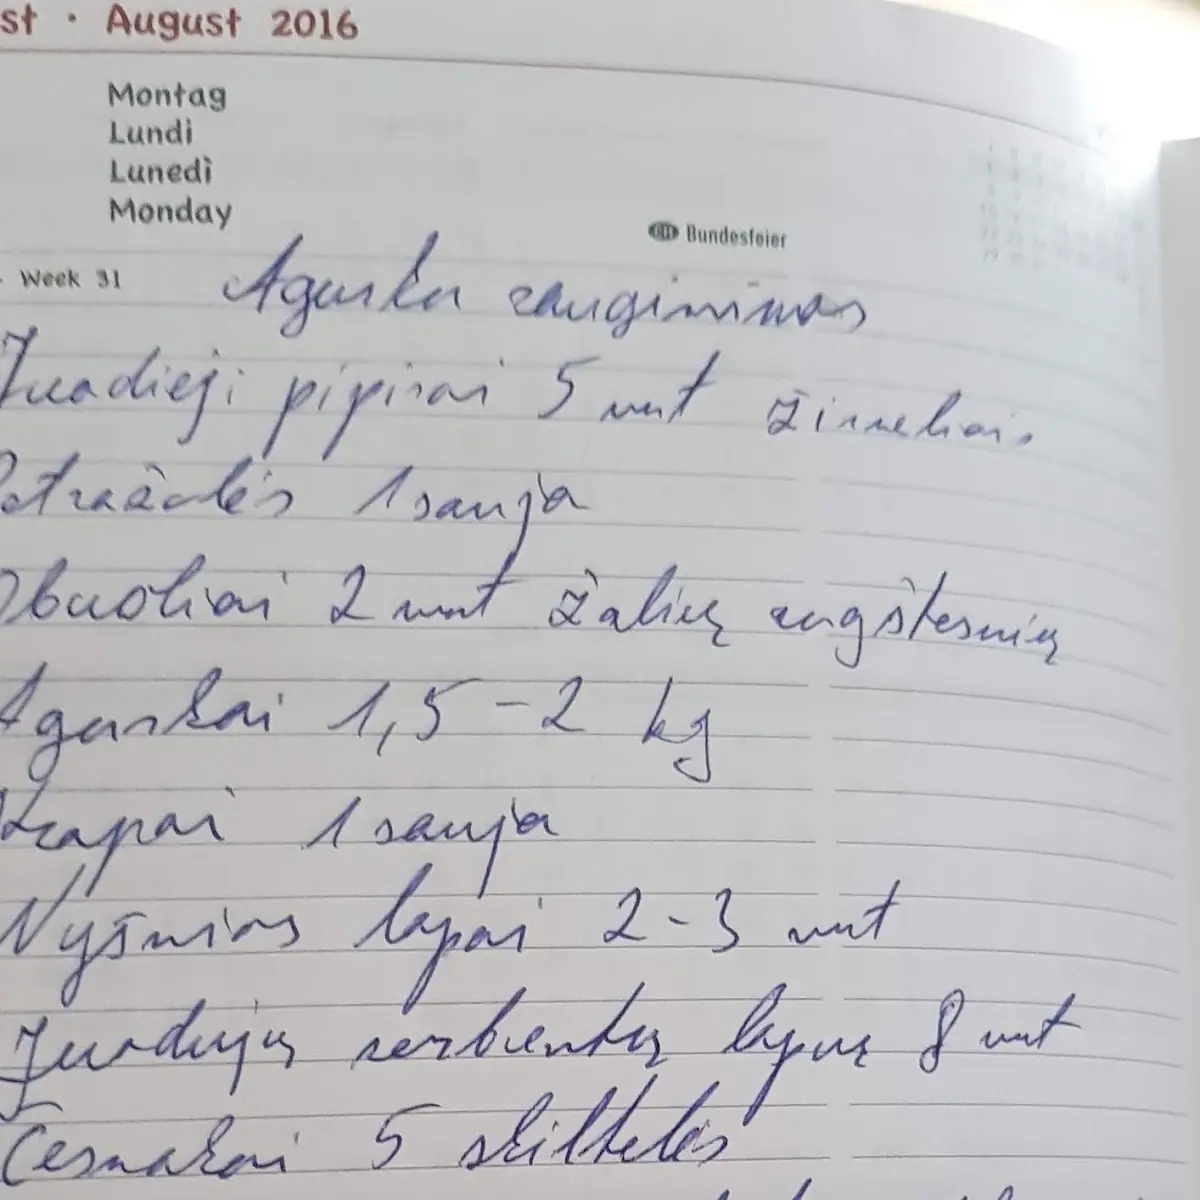 st · August 2016
Montag
Lundi
Lunedì
Monday
CH Bundesfeier
Week 31
Agurku rauginimas
Juodieji pipirai 5 vnt žirneliais
Petražolės 1 sauja
Obuoliai 2 vnt žalių rūgštesnių
Agurkai 1,5 - 2 kg
Krapai 1 sauja
Vyšnios lapai 2 - 3 vnt
Juodųjų serbentų lapų 8 vnt
Česnakai 5 skiltelės